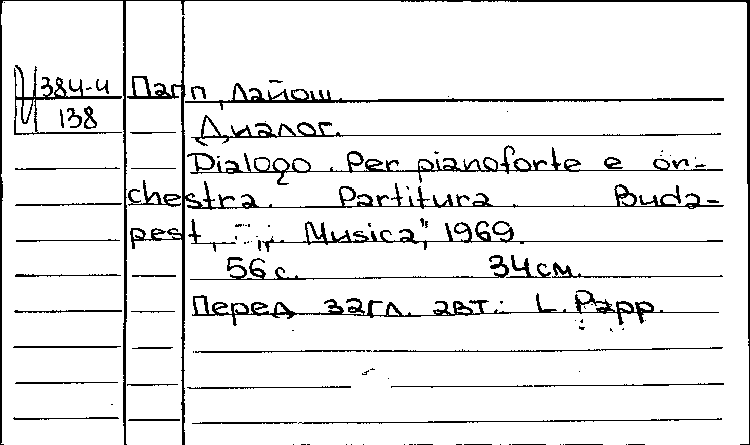 384-4
138
Папп, Лайош.
Диалог.
Dialogo. Per pianoforte e or-
chestra. Partitura. Buda-
pest, Musica", 1969.
56 с. 34 см.
Перед загл. авт.: L. Papp.